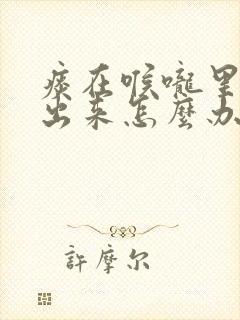 痰在喉嚨里
出来怎麼办
許摩尔